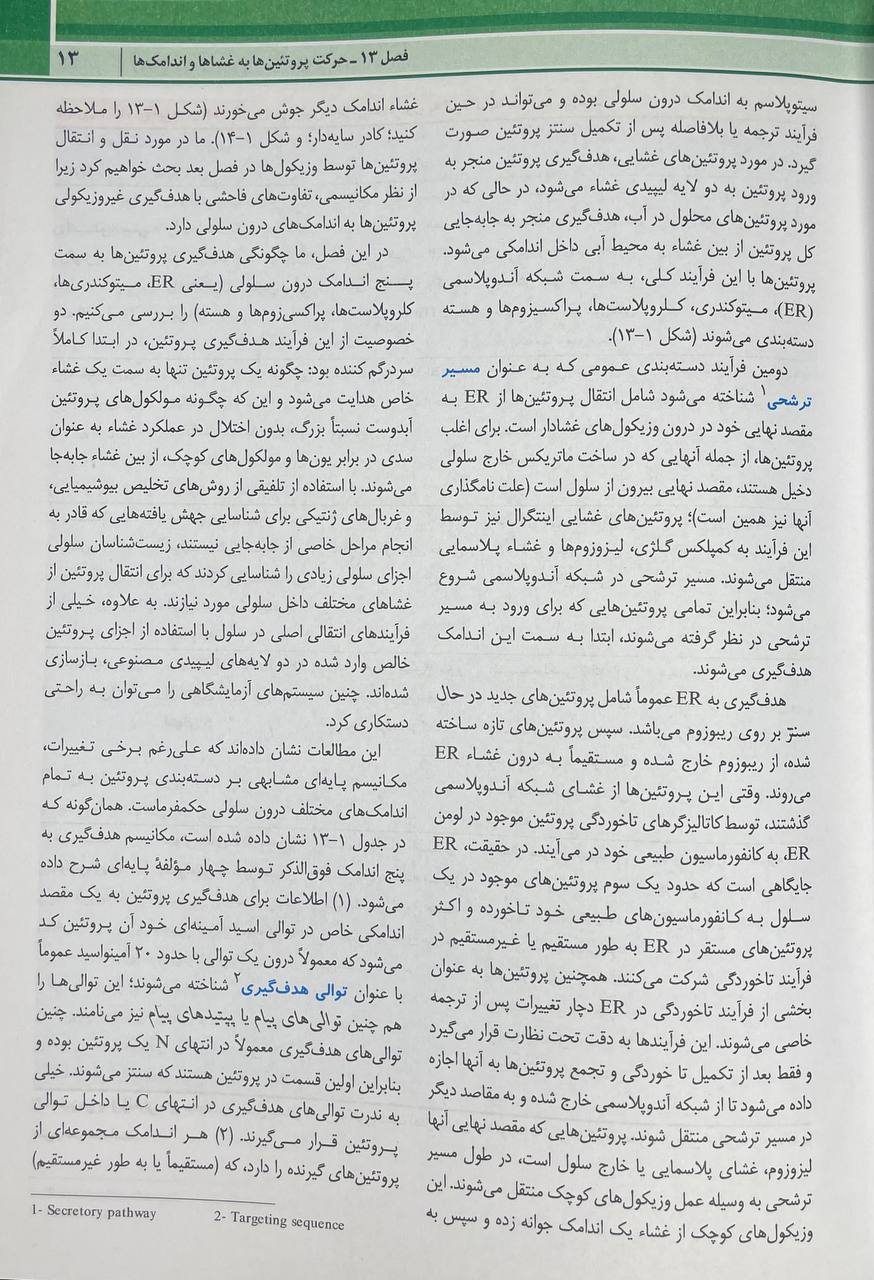 فصل ۱۳ ـ حرکت پروتئین‌ها به غشاها و اندامک‌ها
۱۳
سیتوپلاسم به اندامک درون سلولی بوده و می‌تواند در حین
فرآیند ترجمه یا بلافاصله پس از تکمیل سنتز پروتئین صورت
گیرد. در مورد پروتئین‌های غشایی، هدف‌گیری پروتئین منجر به
ورود پروتئین به دو لایه لیپیدی غشاء می‌شود، در حالی که در
مورد پروتئین‌های محلول در آب، هدف‌گیری منجر به جابه‌جایی
کل پروتئین از بین غشاء به محیط آبی داخل اندامکی می‌شود.
پروتئین‌ها با این فرآیند کلی، به سمت شبکه آندوپلاسمی
(ER)، میتوکندری، کلروپلاست‌ها، پراکسیزوم‌ها و هسته
دسته‌بندی می‌شوند (شکل ۱-۱۳).
دومین فرآیند دسته‌بندی عمومی که به عنوان مسیر
ترشحی۱ شناخته می‌شود شامل انتقال پروتئین‌ها از ER به
مقصد نهایی خود در درون وزیکول‌های غشادار است. برای اغلب
پروتئین‌ها، از جمله آنهایی که در ساخت ماتریکس خارج سلولی
دخیل هستند، مقصد نهایی بیرون از سلول است (علت نامگذاری
آنها نیز همین است)؛ پروتئین‌های غشایی اینتگرال نیز توسط
این فرآیند به کمپلکس گلژی، لیزوزوم‌ها و غشاء پلاسمایی
منتقل می‌شوند. مسیر ترشحی در شبکه آندوپلاسمی شروع
می‌شود؛ بنابراین تمامی پروتئین‌هایی که برای ورود به مسیر
ترشحی در نظر گرفته می‌شوند، ابتدا به سمت این اندامک
هدف‌گیری می‌شوند.
هدف‌گیری به ER عموماً شامل پروتئین‌های جدید در حال
سنتز بر روی ریبوزوم می‌باشد. سپس پروتئین‌های تازه ساخته
شده، از ریبوزوم خارج شده و مستقیماً به درون غشاء ER
می‌روند. وقتی این پروتئین‌ها از غشای شبکه آندوپلاسمی
گذشتند، توسط کاتالیزگرهای تاخوردگی پروتئین موجود در لومن
ER، به کانفورماسیون طبیعی خود در می‌آیند. در حقیقت، ER
جایگاهی است که حدود یک سوم پروتئین‌های موجود در یک
سلول به کانفورماسیون‌های طبیعی خود تاخورده و اکثر
پروتئین‌های مستقر در ER به طور مستقیم یا غیرمستقیم در
فرآیند تاخوردگی شرکت می‌کنند. همچنین پروتئین‌ها به عنوان
بخشی از فرآیند تاخوردگی در ER دچار تغییرات پس از ترجمه
خاصی می‌شوند. این فرآیندها به دقت تحت نظارت قرار می‌گیرد
و فقط بعد از تکمیل تا خوردگی و تجمع پروتئین‌ها به آنها اجازه
داده می‌شود تا از شبکه آندوپلاسمی خارج شده و به مقاصد دیگر
در مسیر ترشحی منتقل شوند. پروتئین‌هایی که مقصد نهایی آنها
لیزوزوم، غشای پلاسمایی یا خارج سلول است، در طول مسیر
ترشحی به وسیله عمل وزیکول‌های کوچک منتقل می‌شوند. این
وزیکول‌های کوچک از غشاء یک اندامک جوانه زده و سپس به
غشاء اندامک دیگر جوش می‌خورند (شکل ۱-۱۳ را ملاحظه
کنید؛ کادر سایه‌دار؛ و شکل ۱-۱۴). ما در مورد نقل و انتقال
پروتئین‌ها توسط وزیکول‌ها در فصل بعد بحث خواهیم کرد زیرا
از نظر مکانیسمی، تفاوت‌های فاحشی با هدف‌گیری غیروزیکولی
پروتئین‌ها به اندامک‌های درون سلولی دارد.
در این فصل، ما چگونگی هدف‌گیری پروتئین‌ها به سمت
پنج اندامک درون سلولی (یعنی ER، میتوکندری‌ها،
کلروپلاست‌ها، پراکسی‌زوم‌ها و هسته) را بررسی می‌کنیم. دو
خصوصیت از این فرآیند هدف‌گیری پروتئین، در ابتدا کاملاً
سردرگم کننده بود: چگونه یک پروتئین تنها به سمت یک غشاء
خاص هدایت می‌شود و این که چگونه مولکول‌های پروتئین
آبدوست نسبتاً بزرگ، بدون اختلال در عملکرد غشاء به عنوان
سدی در برابر یون‌ها و مولکول‌های کوچک، از بین غشاء جابه‌جا
می‌شوند. با استفاده از تلفیقی از روش‌های تخلیص بیوشیمیایی،
و غربال‌های ژنتیکی برای شناسایی جهش یافته‌هایی که قادر به
انجام مراحل خاصی از جابه‌جایی نیستند، زیست‌شناسان سلولی
اجزای سلولی زیادی را شناسایی کردند که برای انتقال پروتئین از
غشاهای مختلف داخل سلولی مورد نیازند. به علاوه، خیلی از
فرآیندهای انتقالی اصلی در سلول با استفاده از اجزای پروتئین
خالص وارد شده در دو لایه‌های لیپیدی مصنوعی، بازسازی
شده‌اند. چنین سیستم‌های آزمایشگاهی را می‌توان به راحتی
دستکاری کرد.
این مطالعات نشان داده‌اند که علی‌رغم برخی تغییرات،
مکانیسم پایه‌ای مشابهی بر دسته‌بندی پروتئین به تمام
اندامک‌های مختلف درون سلولی حکمفرماست. همان‌گونه که
در جدول ۱-۱۳ نشان داده شده است، مکانیسم هدف‌گیری به
پنج اندامک فوق‌الذکر توسط چهار مؤلفهٔ پایه‌ای شرح داده
می‌شود. (۱) اطلاعات برای هدف‌گیری پروتئین به یک مقصد
اندامکی خاص در توالی اسید آمینه‌ای خود آن پروتئین کد
می‌شود که معمولاً درون یک توالی با حدود ۲۰ آمینواسید عموماً
با عنوان توالی هدف‌گیری۲ شناخته می‌شوند؛ این توالی‌ها را
هم چنین توالی‌های پیام یا پپتیدهای پیام نیز می‌نامند. چنین
توالی‌های هدف‌گیری معمولاً در انتهای N یک پروتئین بوده و
بنابراین اولین قسمت در پروتئین هستند که سنتز می‌شوند. خیلی
به ندرت توالی‌های هدف‌گیری در انتهای C یا داخل توالی
پروتئین قرار می‌گیرند. (۲) هر اندامک مجموعه‌ای از
پروتئین‌های گیرنده را دارد، که (مستقیماً یا به طور غیرمستقیم)
1- Secretory pathway 2- Targeting sequence